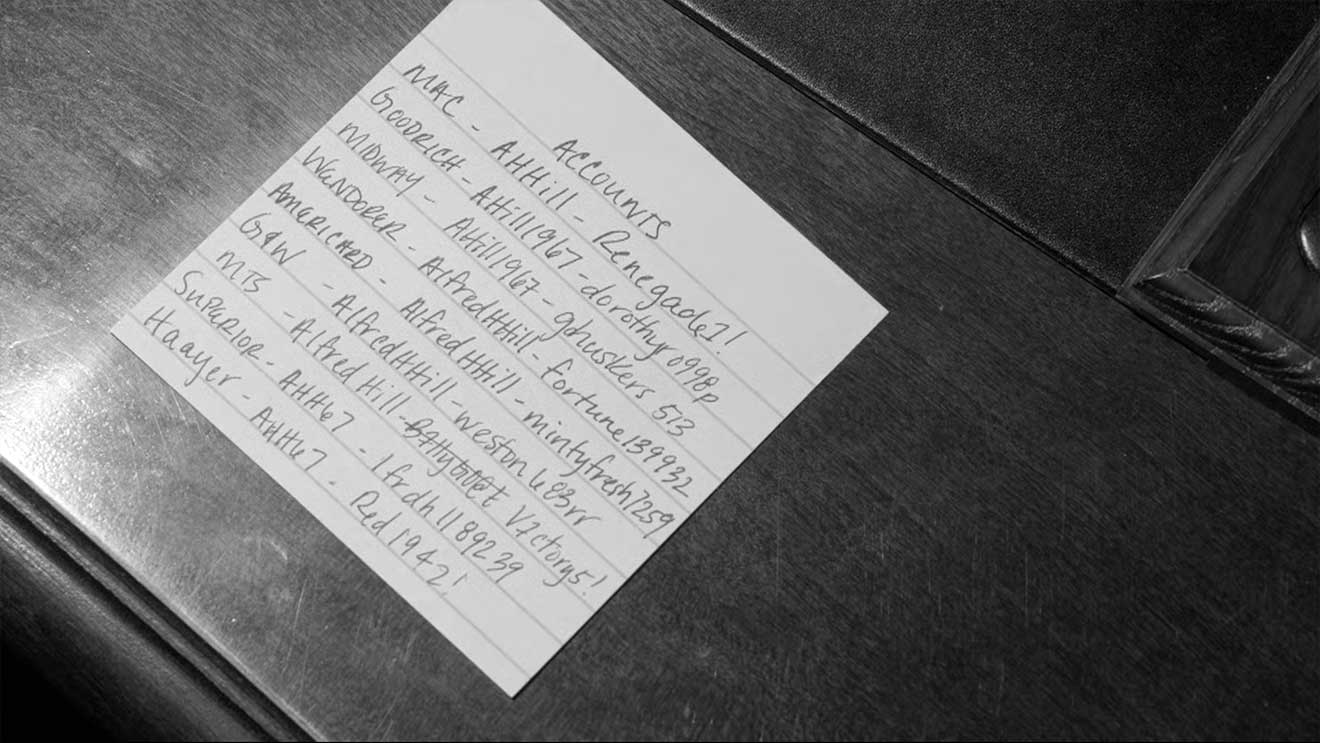 ACCOUNTS
MAC - AHHill - Renegade1!
GOODRICH - AHill1967 - dorothy0998p
MIDWAY - AHill1967 - gohuskers 513
WENDORER - AlfredHHill - fortune139932
AMERICARD - AlfredHHill - mintyfresh7259
G&W - AlfredHHill - weston683rr
MTS - AlfredHill - V7ctory5!
SUPERIOR - AHH67 - lfrdh1189239
Haayer - AHH67 - Red1942!